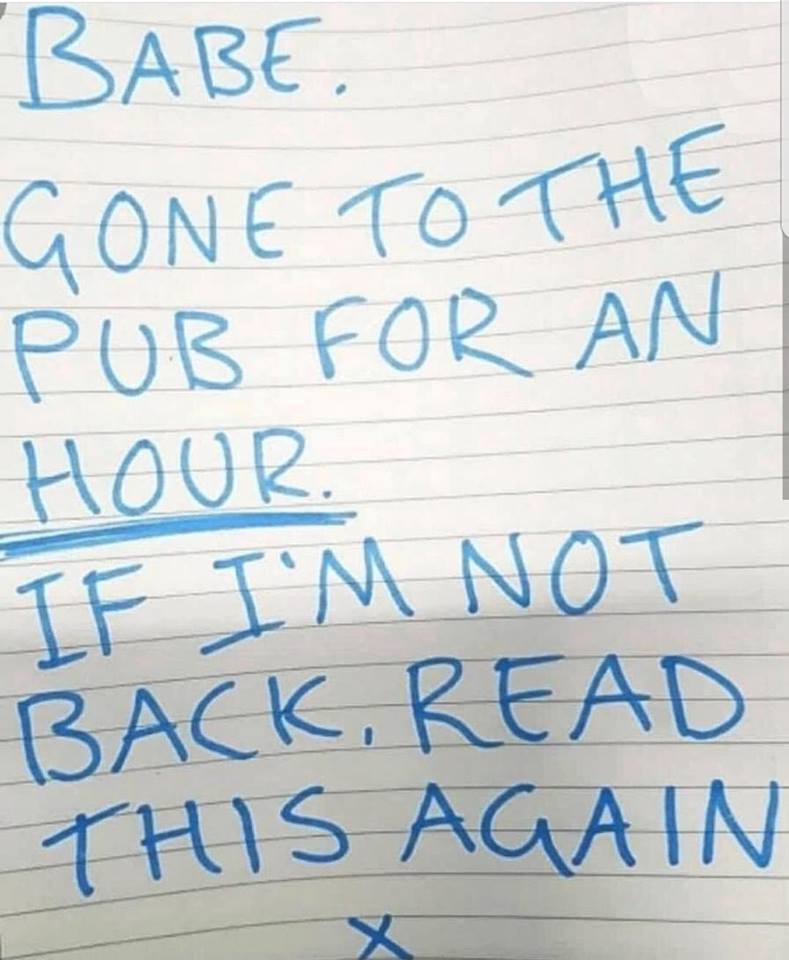 BABE.
GONE TO THE
PUB FOR AN
HOUR.
IF I'M NOT
BACK, READ
THIS AGAIN
X